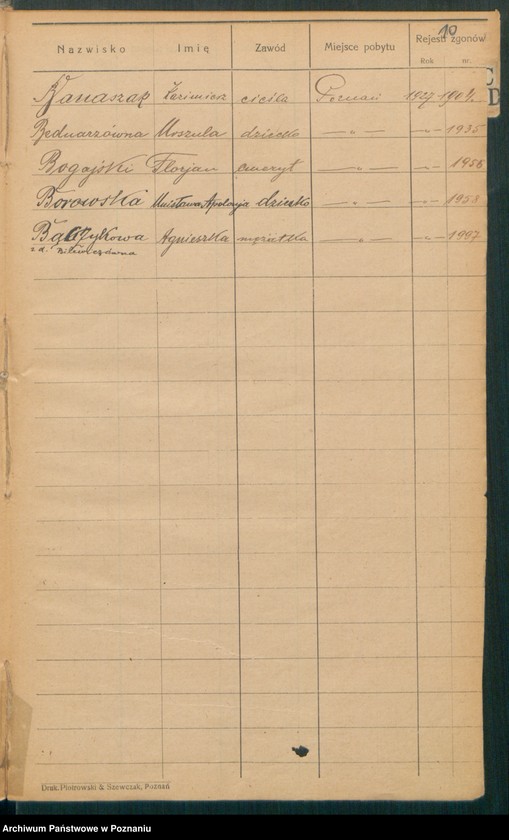 10
Nazwisko Imię Zawód Miejsce pobytu Rejestr zgonów
Rok nr.
Kazimierz cieśla Poznań 1927 1904
C
D
Bednarzówna Urszula dziecko —„— —„— 1935
Bogajski Florjan emeryt —„— —„— 1956
Borowska Apolonja dziecko —„— —„— 1958
Bączykowa Agnieszka mężatka —„— —„— 1997
z d.
Druk. Piotrowski & Szewczak, Poznań
Archiwum Państwowe w Poznaniu